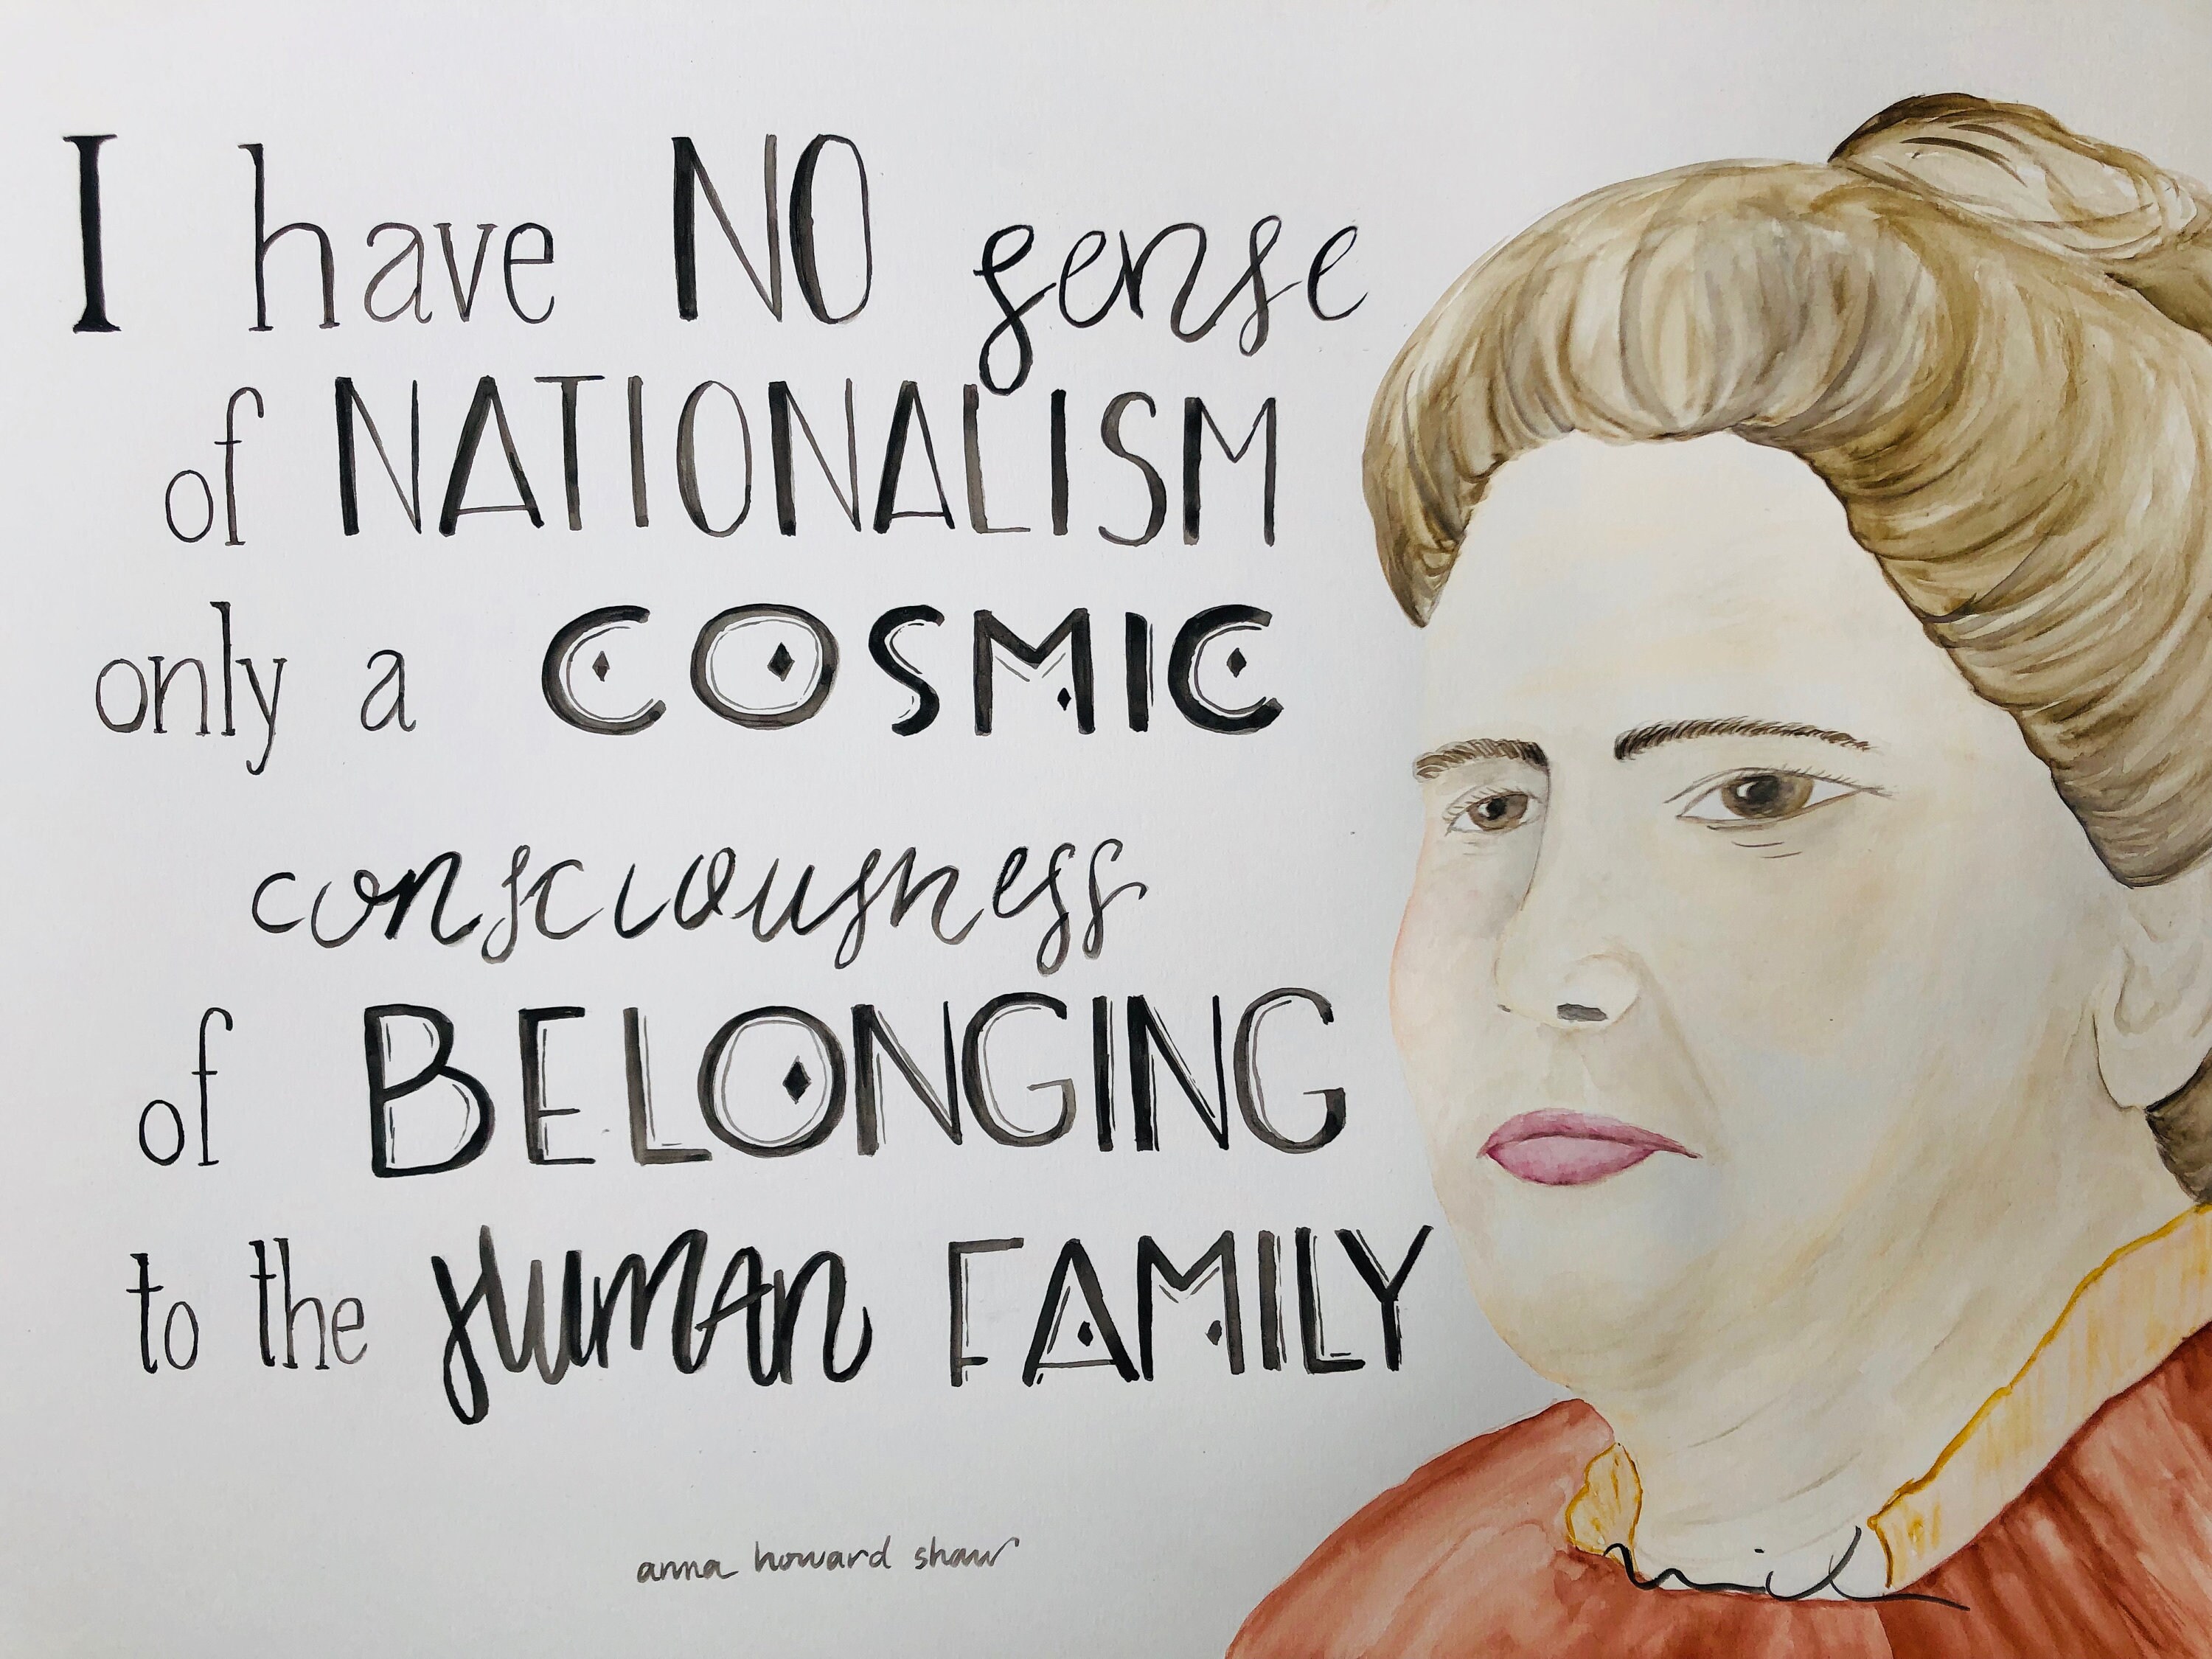 I have NO sense
of NATIONALISM
only a COSMIC
consciousness
of BELONGING
to the HUMAN FAMILY
anna howard shaw